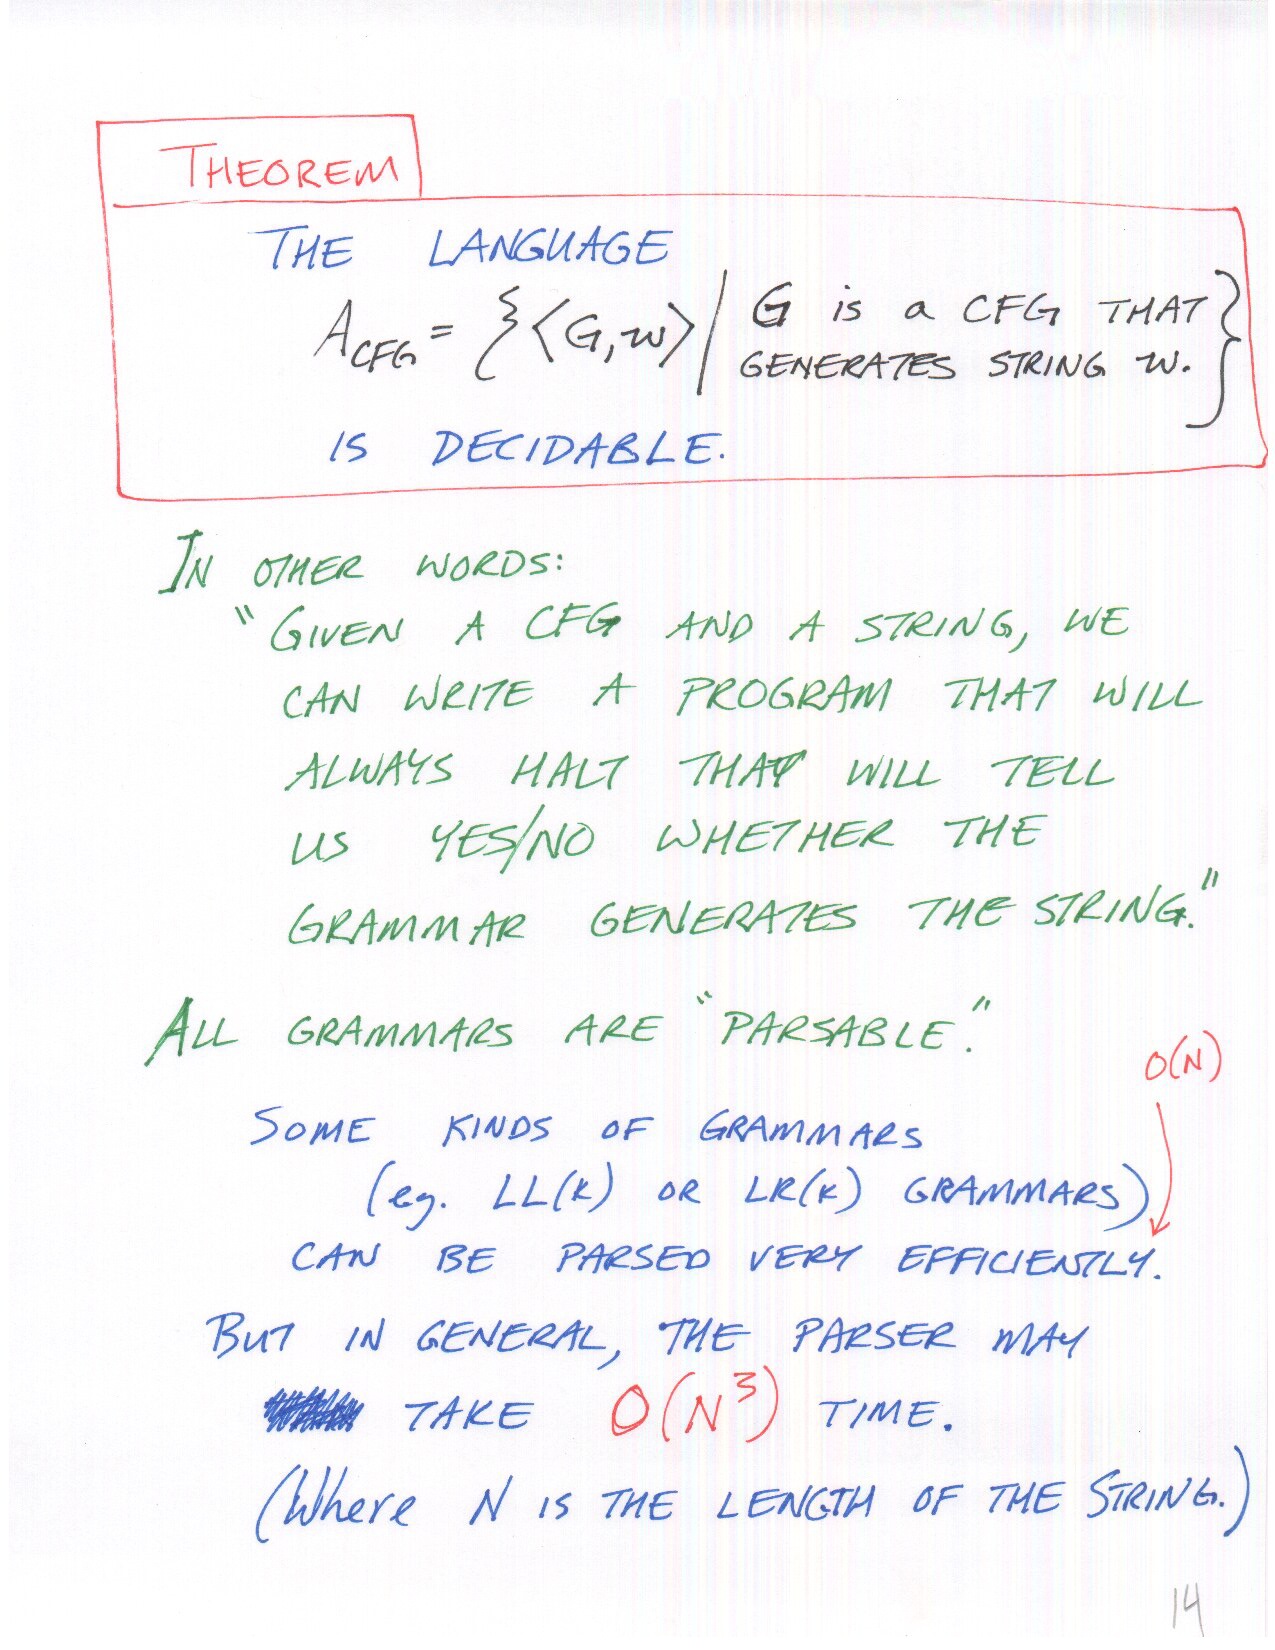 THEOREM
THE LANGUAGE
A_CFG = {<G,w> | G is a CFG THAT
GENERATES STRING w. }
IS DECIDABLE.
IN OTHER WORDS:
"GIVEN A CFG AND A STRING, WE
CAN WRITE A PROGRAM THAT WILL
ALWAYS HALT THAT WILL TELL
US YES/NO WHETHER THE
GRAMMAR GENERATES THE STRING."
ALL GRAMMARS ARE "PARSABLE."
O(N)
SOME KINDS OF GRAMMARS
(eg. LL(K) OR LR(K) GRAMMARS)
CAN BE PARSED VERY EFFICIENTLY.
BUT IN GENERAL, THE PARSER MAY
TAKE O(N³) TIME.
(Where N IS THE LENGTH OF THE STRING.)
14